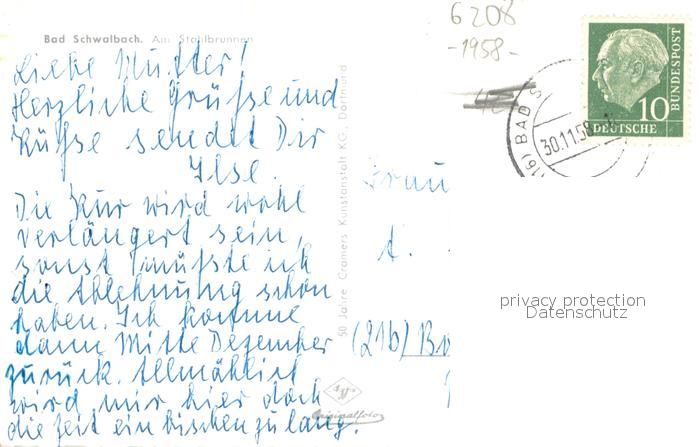 6208
-1958-
Bad Schwalbach. Am Stahlbrunnen
Liebe Mutter!
Herzliche Grüße und
Küsse sendet Dir
Ilse.
Die Kur wird wohl
verlängert sein,
sonst müßte ich
die Ablehnung schon
haben. Ich komme
dann Mitte Dezember
zurück. Allmählich
wird mir hier doch
die Zeit ein bischen zu lang.
50 Jahre Cramers Kunstanstalt KG, Dortmund
Originalfoto
Frau
A.
(21b)
10
DEUTSCHE
BUNDESPOST
16) BAD S
30.11.58
privacy protection
Datenschutz